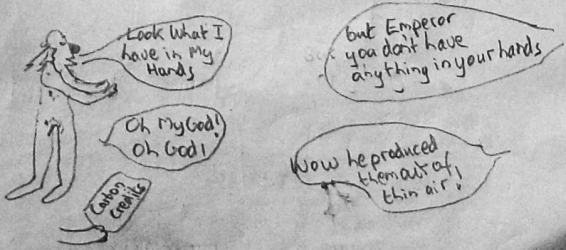 Look What I
have in My
Hands
but Emperor
you don't have
anything in your hands
Oh My God!
Oh God!
Carbon
Credits
Wow he produced
them out of
thin air!